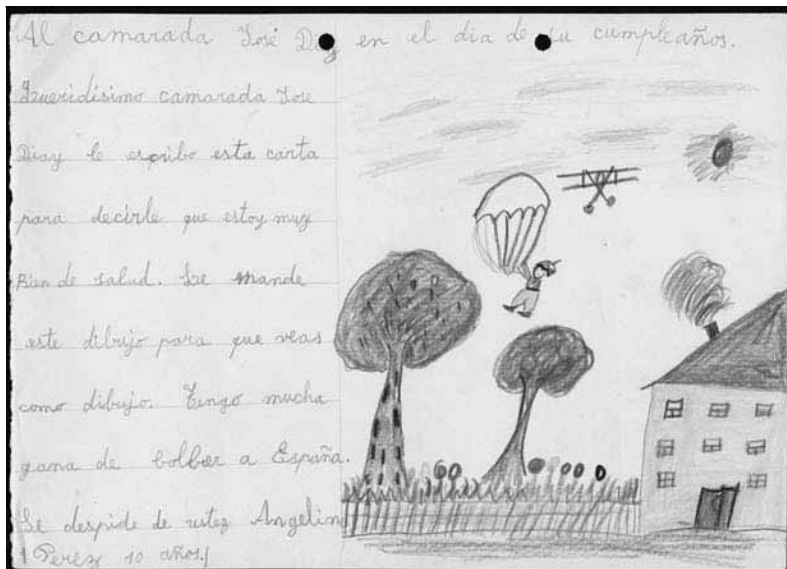 Al camarada José Diaz en el dia de su cumpleaños.
Queridisimo camarada Jose
Diaz le escribo esta carta
para decirle que estoy muy
Bien de salud. Le mande
este dibujo para que veas
como dibujo. Tengo mucha
gana de bolber a España.
Se despide de ustez Angelin
(Perez 10 años.)